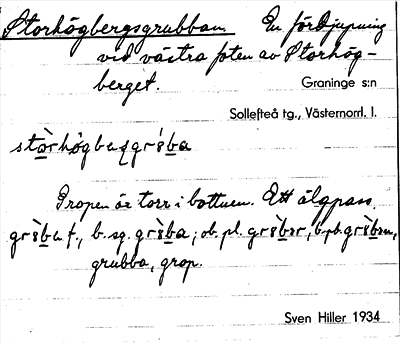 Storhögbergsgrubban. En fördjupning
vid västra foten av Storhög-
berget.
Graninge s:n
Sollefteå tg., Västernorrl. l.
Gropen är torr i bottnen. Ett älgpass.
f., b. sg. ; ob. pl. , b. pl.
grubba, grop.
Sven Hiller 1934